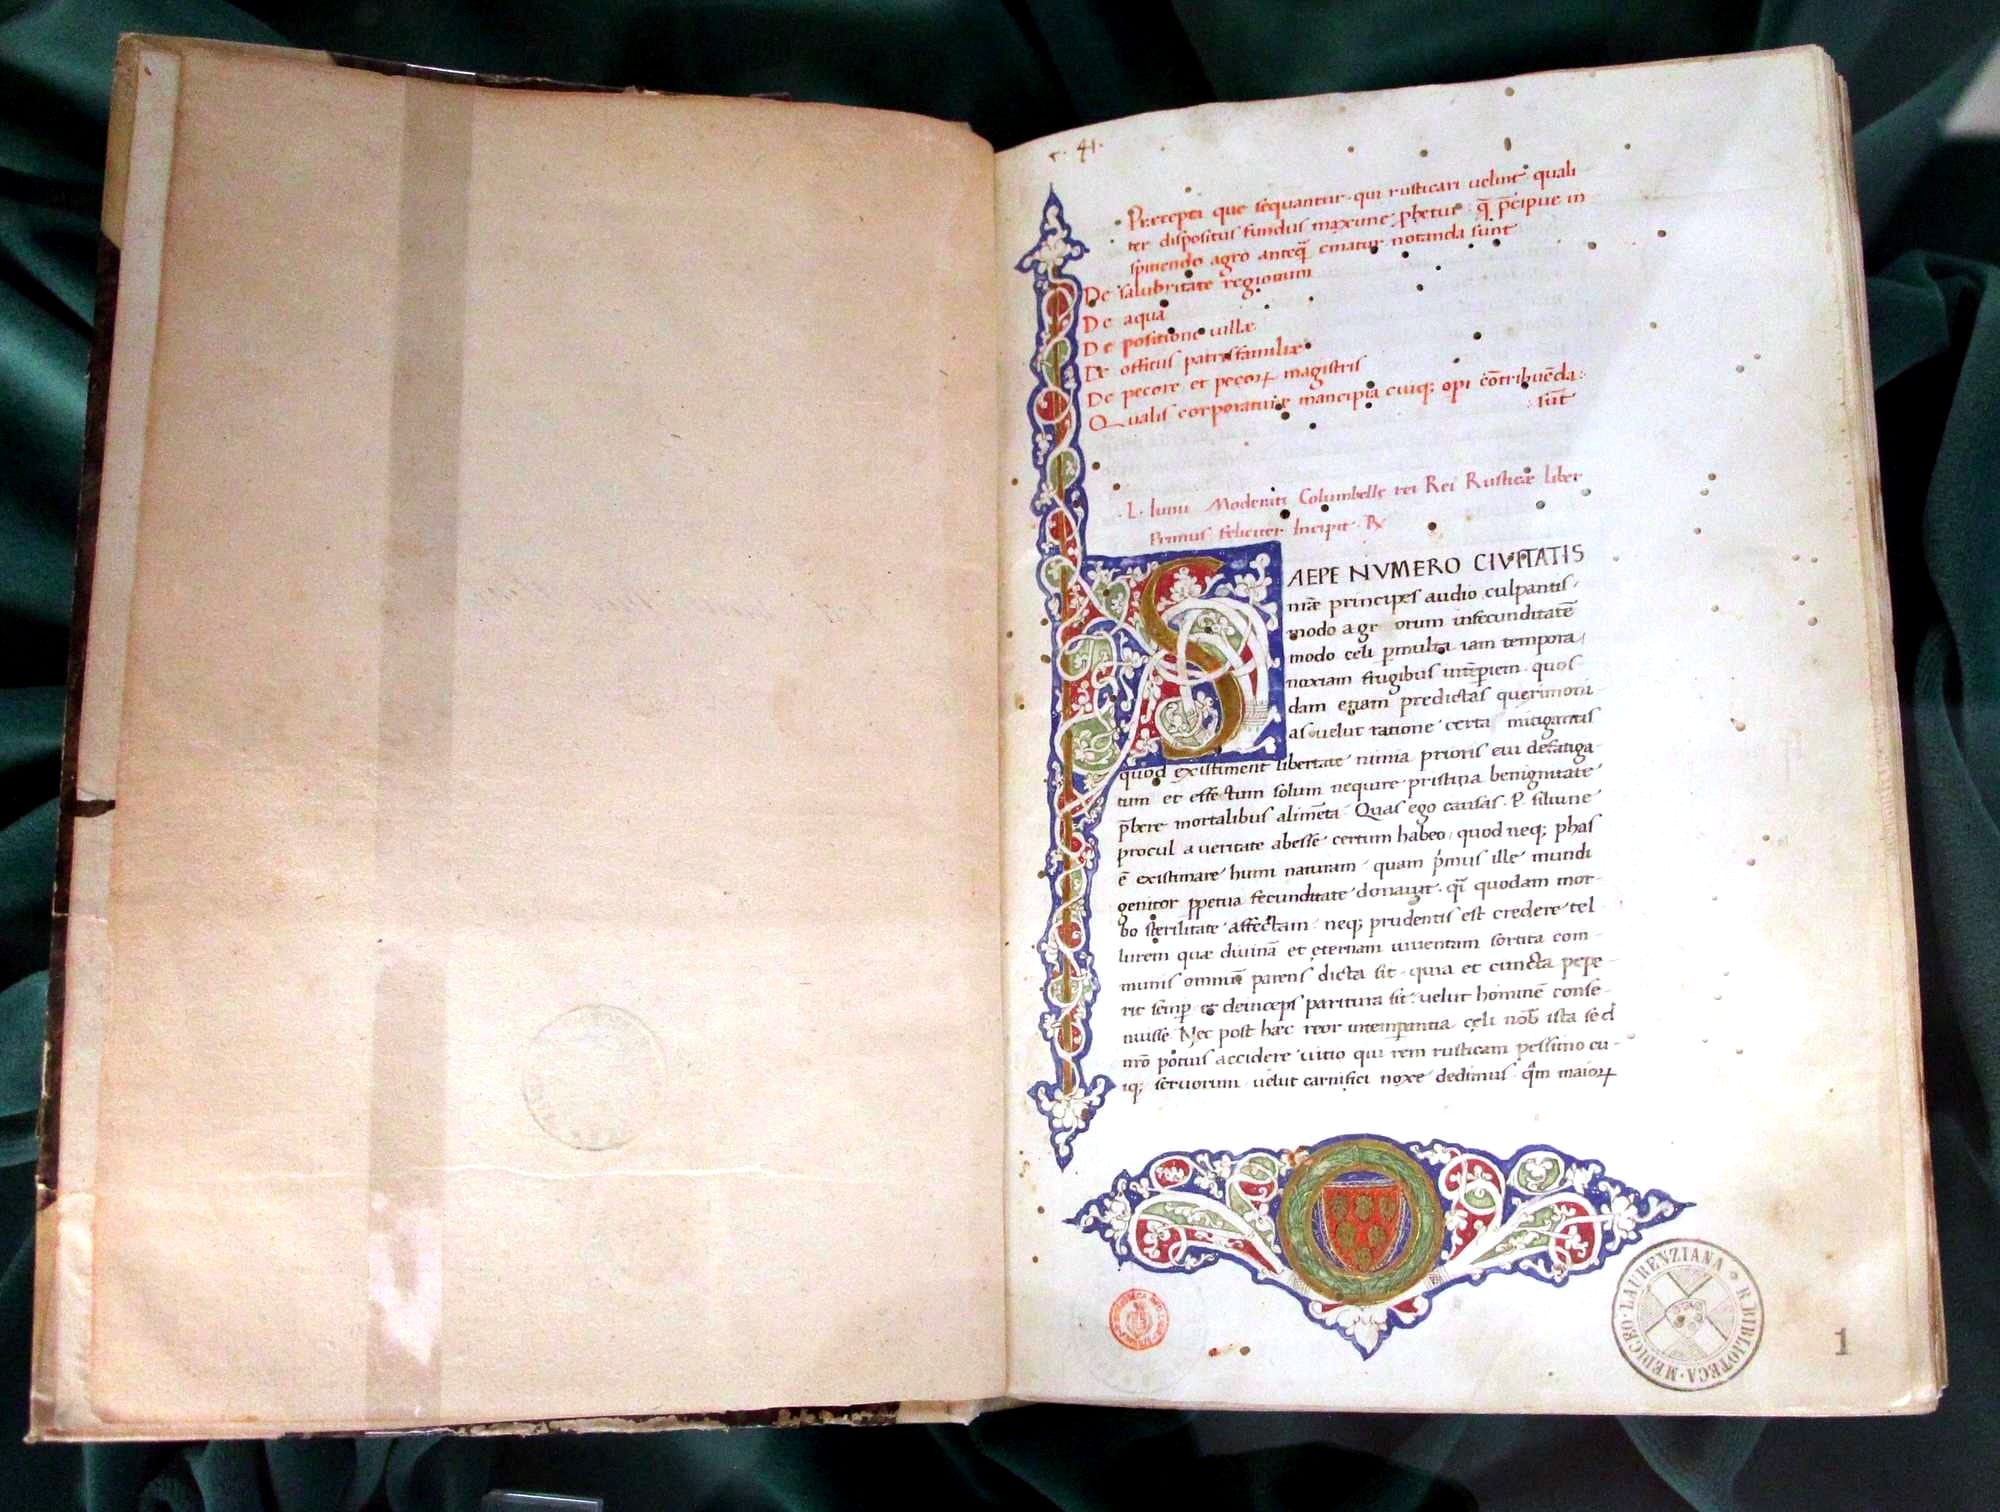 c. 41.
Precepta que sequantur qui rusticari velint quali
ter dispositus fundus maxime phetur q̄ p̄cipue in
ipiciendo agro anteq̄ ematur notanda sunt
De salubritate regionum
De aqua
De positione villæ
De officiis patrisfamiliæ
De pecore et pecorꝝ magistris
Qualis corporaturæ mancipia cuiq; opi cōtribuēda
sūt
.L. Iunii Moderati Columbelle rei Rei Rusticæ liber
Primus feliciter Incipit
SAEPE NVMERO CIVITATIS
nr̄æ principes audio culpantis
modo agr orum infecunditatē
modo celi p̄multa iam tempora
noxiam frugibus intēpiem quos
dam etiam predictas querimoni
as velut ratione certa mitigantis
quod existiment libertate nimia prioris evi defatiga-
tum et effectum solum nequire pristina benignitate
p̄bere mortalibus alimēta Quas ego causas .P. silvine
procul a veritate abesse certum habeo quod neq; phas
ē existimare humi naturam quam p̄mus ille mundi
genitor ppetua fecunditate donavit q̄ quodam mor-
bo sterilitate affectam neq; prudentis est credere tel
lurem quæ divinā et eternam iuventam sortita com-
munis omniū parens dicta sit quia et cuncta pepe-
rit semp̄ et deinceps paritura sit velut hominē conse-
nuisse Nec post hæc reor intemperantia celi nob̄ ista sed
nr̄o potius accidere vitio qui rem rusticam pessimo cu-
iq; servorum velut carnifici noxe dedimus q̄m maiorꝝ
R. BIBLIOTECA MEDICEO LAURENZIANA
1